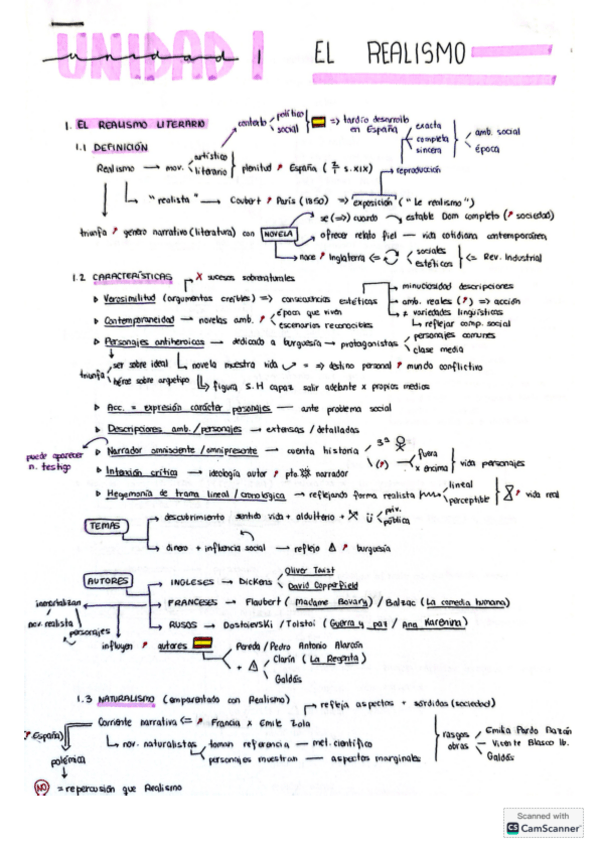 UNIDAD 1
unidad 1 EL REALISMO
1. EL REALISMO LITERARIO
contexto político social => tardío desarrollo en España
exacta
completa
sincera
amb. social
época
1.1 DEFINICIÓN
Realismo → mov. artístico literario plenitud España ( s.XIX)
reproducción
"realista" → Courbet París (1850) => exposición ("Le realismo")
se (=>) cuando estable Dom completo ( sociedad)
triunfa género narrativo (literatura) con NOVELA
ofrecer relato fiel — vida cotidiana contemporánea
nace Inglaterra <= sociales estéticos <= Rev. Industrial
1.2 CARACTERÍSTICAS X sucesos sobrenaturales
minuciosidad descripciones
Verosimilitud (argumentos creíbles) => consecuencias estéticas
amb. reales ( ) => acción
≠ variedades lingüísticas
reflejar comp. social
Contemporaneidad → novelas amb. época que viven
escenarios reconocibles
Personajes antiheroicos → dedicado a burguesía → protagonistas
personajes comunes
clase media
triunfa ser sobre ideal novela muestra vida = => destino personal mundo conflictivo
héroe sobre arquetipo figura s. H capaz salir adelante x propios medios
Acc. = expresión carácter personajes — ante problema social
Descripciones amb./personajes → extensas / detalladas
puede aparecer n. testigo
Narrador omnisciente/omnipresente → cuenta historia 3ª
( ) fuera
x encima
vida personajes
Intención crítica → ideología autor pto. narrador
Hegemonía de trama lineal/cronológica → reflejando forma realista
lineal
perceptible
vida real
TEMAS
descubrimiento sentido vida + adulterio +
priv.
pública
dinero + influencia social → reflejo Δ burguesía
AUTORES
INGLESES → Dickens Oliver Twist
David Copperfield
FRANCESES → Flaubert (Madame Bovary) / Balzac (La comedia humana)
RUSOS → Dostoievski / Tolstoi (Guerra y paz / Ana Karenina)
inmortalizan
nov. realista
personajes
influyen autores
Pereda / Pedro Antonio Alarcón
+ Δ Clarín (La Regenta)
Galdós
1.3 NATURALISMO (emparentado con Realismo)
refleja aspectos + sórdidos (sociedad)
Corriente narrativa <= Francia x Emile Zola
España)
nov. naturalistas toman referencia — met. científico
personajes muestran — aspectos marginales
rasgos obras
Emilia Pardo Bazán
Vicente Blasco Ib.
Galdós
polémica
NO = repercusión que Realismo
Scanned with
CS CamScanner